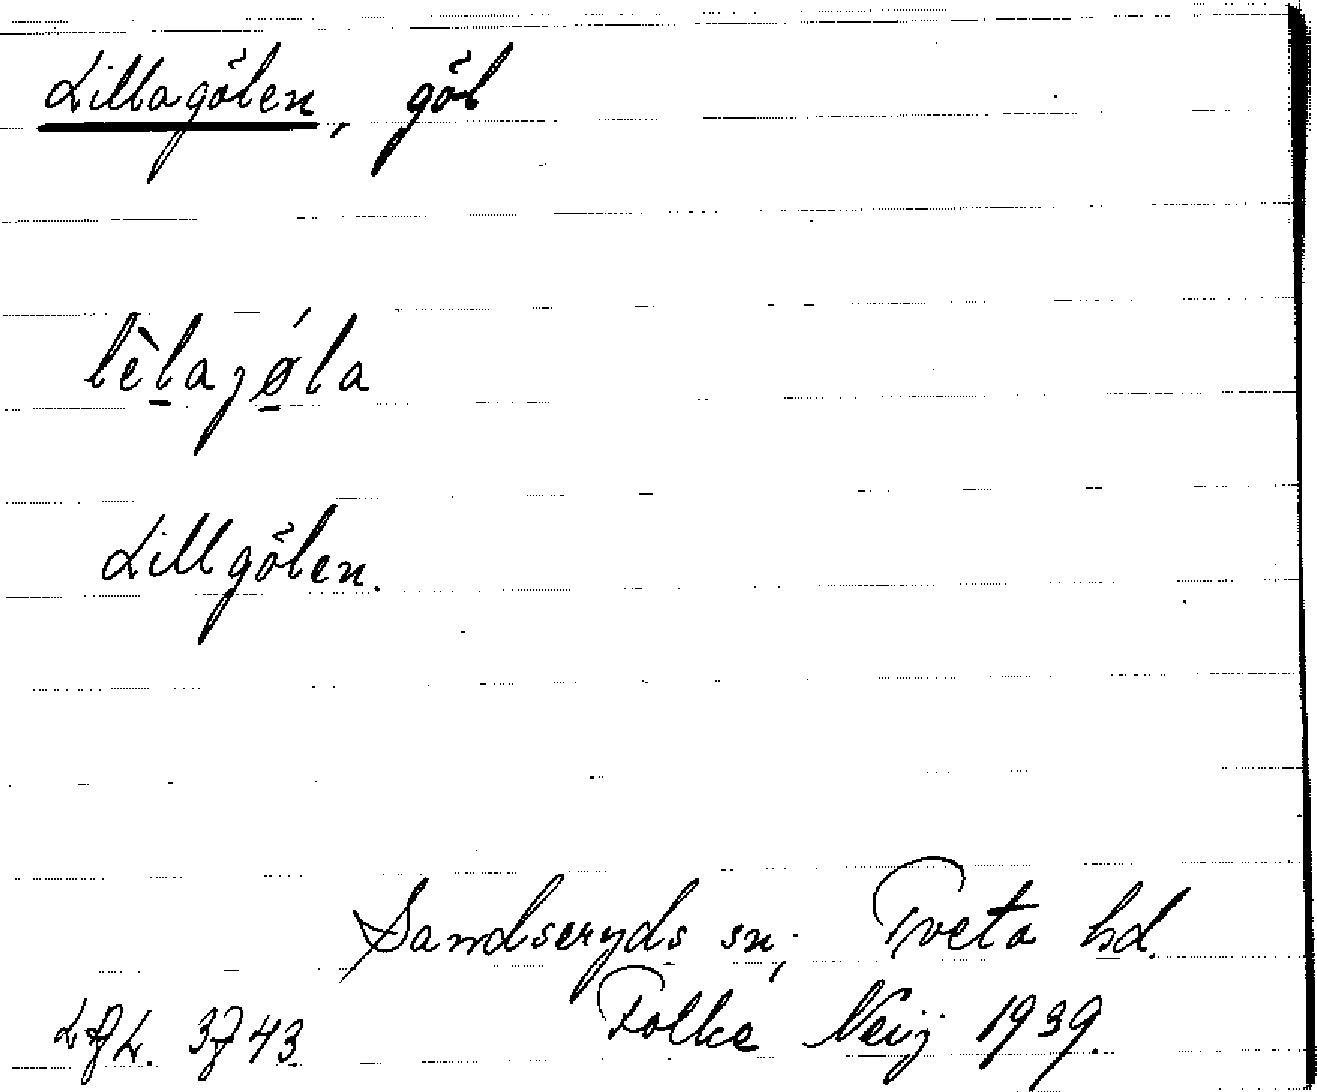 Lillagölen, göl
lèlajǿla
Lillgölen.
Sandseryds sn; Tveta hd.
Folke Neij 1939.